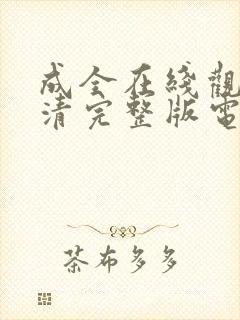 成全在綫觀
清完整版電
茶布多多